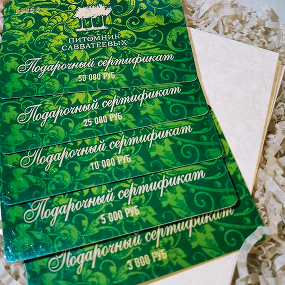 ПИТОМНИК
САВВАТЕЕВЫХ
Подарочный сертификат
50 000 РУБ
Подарочный сертификат
25 000 РУБ
Подарочный сертификат
10 000 РУБ
Подарочный сертификат
5 000 РУБ
Подарочный сертификат
3 000 РУБ